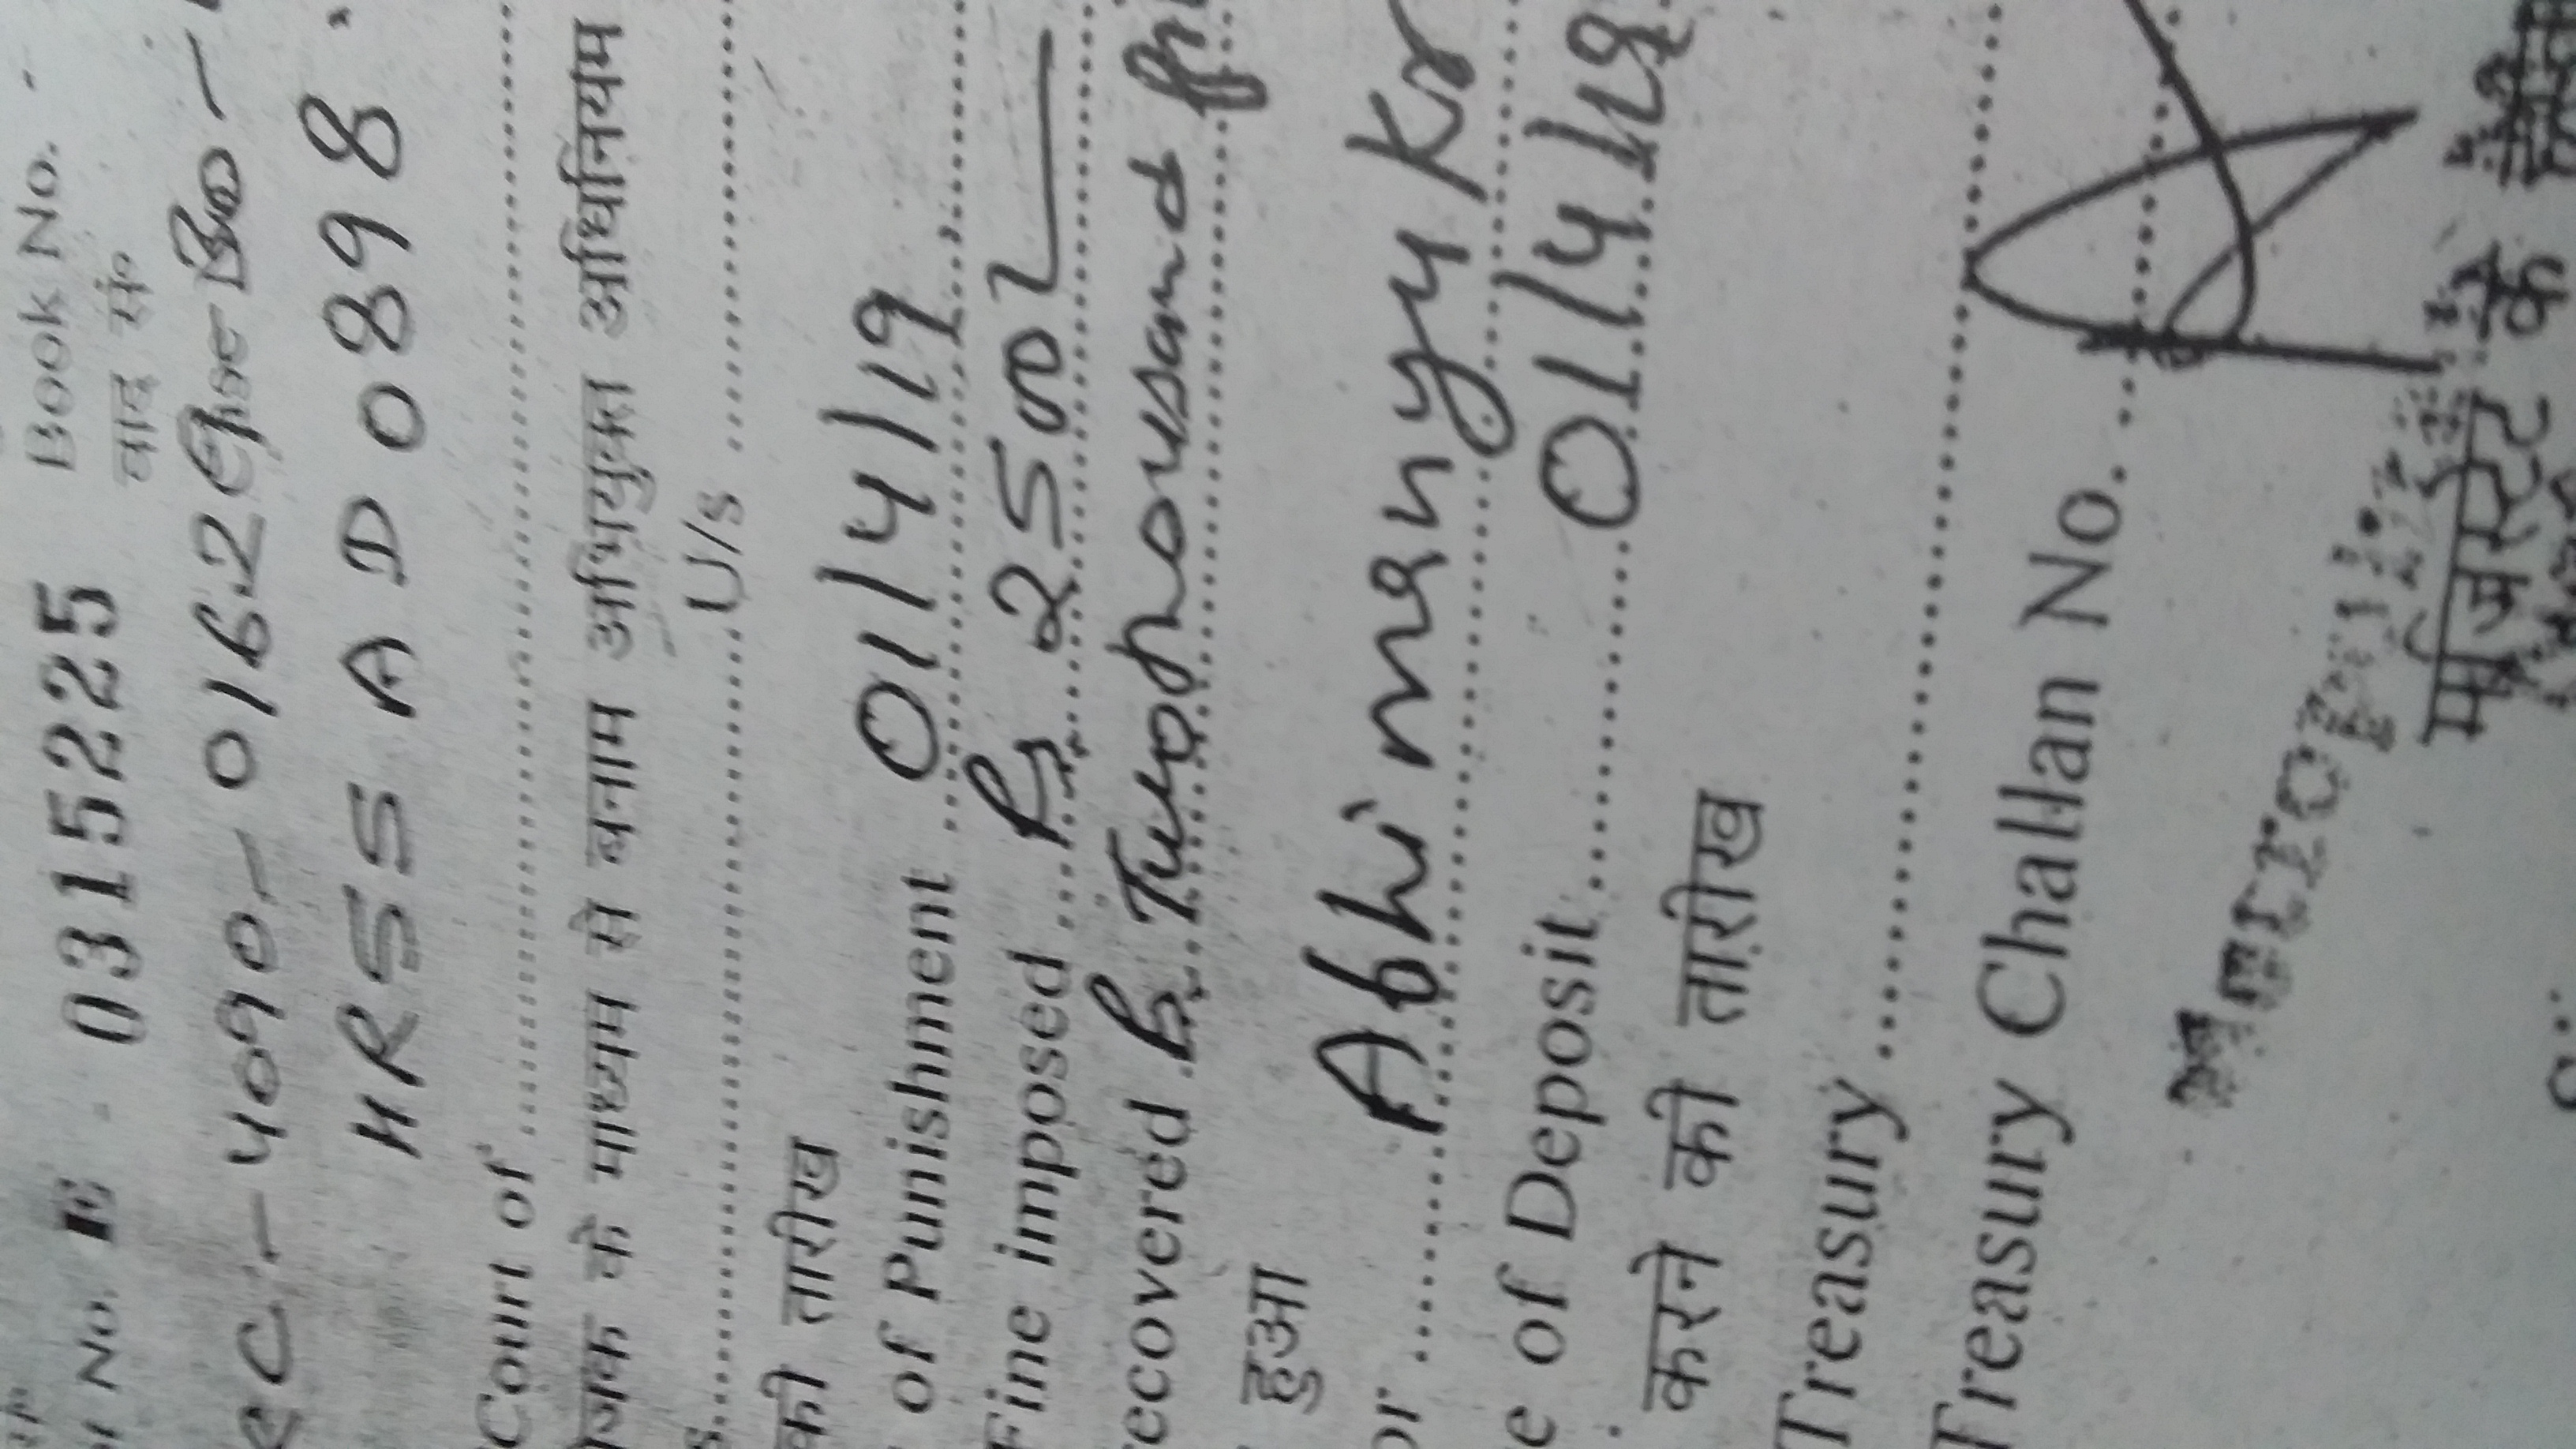 Book No.
No. E 0315225 वाद सं०
RC-4090-0162
HR55 AD 0898
Court of
के माध्यम से बनाम अभियुक्त अधिनियम
U/s
की तारीख
of Punishment 01/4/19
Fine imposed Rs 2500/-
recovered Rs. Two thousand
हुआ
or Abhimanyu Kr
e of Deposit 01/4/19
करने की तारीख
Treasury
Treasury Challan No.
मजिस्ट्रेट के